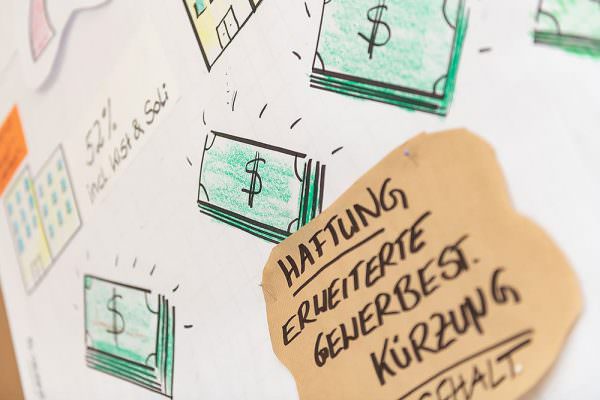 $
52%
incl. KiSt & Soli
$
HAFTUNG
ERWEITERTE
GEWERBEST.
KÜRZUNG
$